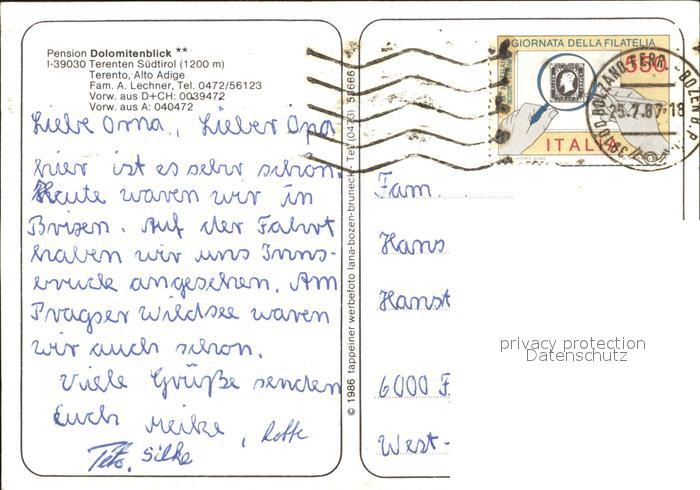 Pension Dolomitenblick **
I-39030 Terenten Südtirol (1200 m)
Terento, Alto Adige
Fam. A. Lechner, Tel. 0472/56123
Vorw. aus D+CH: 0039472
Vorw. aus A: 040472
Liebe Oma, Lieber Opa
hier ist es sehr schön.
Heute waren wir in
Brixen. Auf der Fahrt
haben wir uns Inns-
bruck angesehen. Am
Pragser Wildsee waren
wir auch schon.
Viele Grüße senden
Euch Meike,
Silke
© 1986 tappeiner werbefoto lana-bozen-bruneck - Tel. (0473)
GIORNATA DELLA FILATELIA
550
ITALIA
25.7.87-18
Fam.
Hans
Hanst
6000 F
West-
privacy protection
Datenschutz